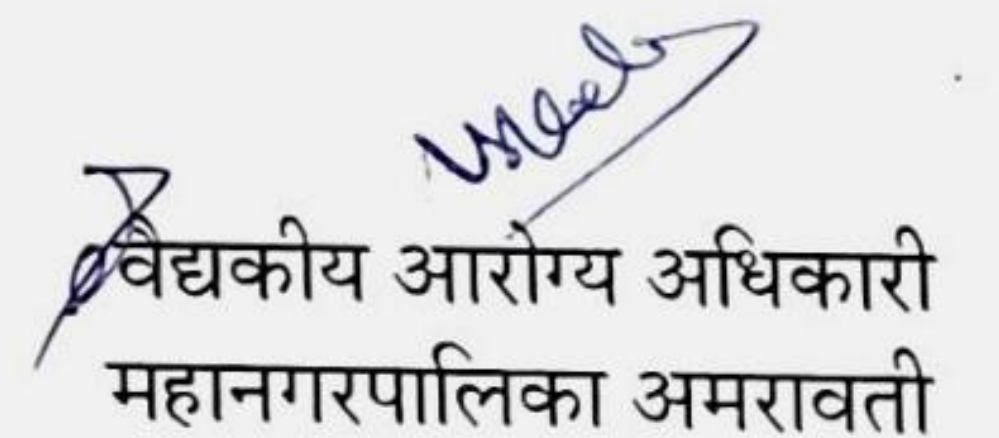 वैद्यकीय आरोग्य अधिकारी
महानगरपालिका अमरावती